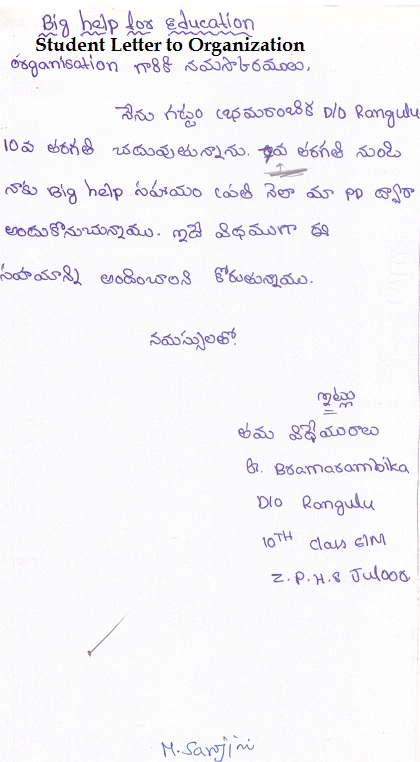 Big help for education
Student Letter to Organization
organisation గారికి నమస్కారములు,
నేను గట్టుం భ్రమరాంబిక D/O Rangulu
10వ తరగతి చదువుతున్నాను. 9వ తరగతి నుండి
నాకు Big help సహాయం ప్రతి నెలా మా PD ద్వారా
అందుకొనుచున్నాము. ఇదే విధముగా ఈ
సహాయాన్ని అందించాలని కోరుతున్నాము.
నమస్సులతో.
ఇట్లు
తమ విధేయురాలు
G. Bramarambika
D/O Rangulu
10TH class E/M
Z.P.H.S Juloor
M. Sarojini